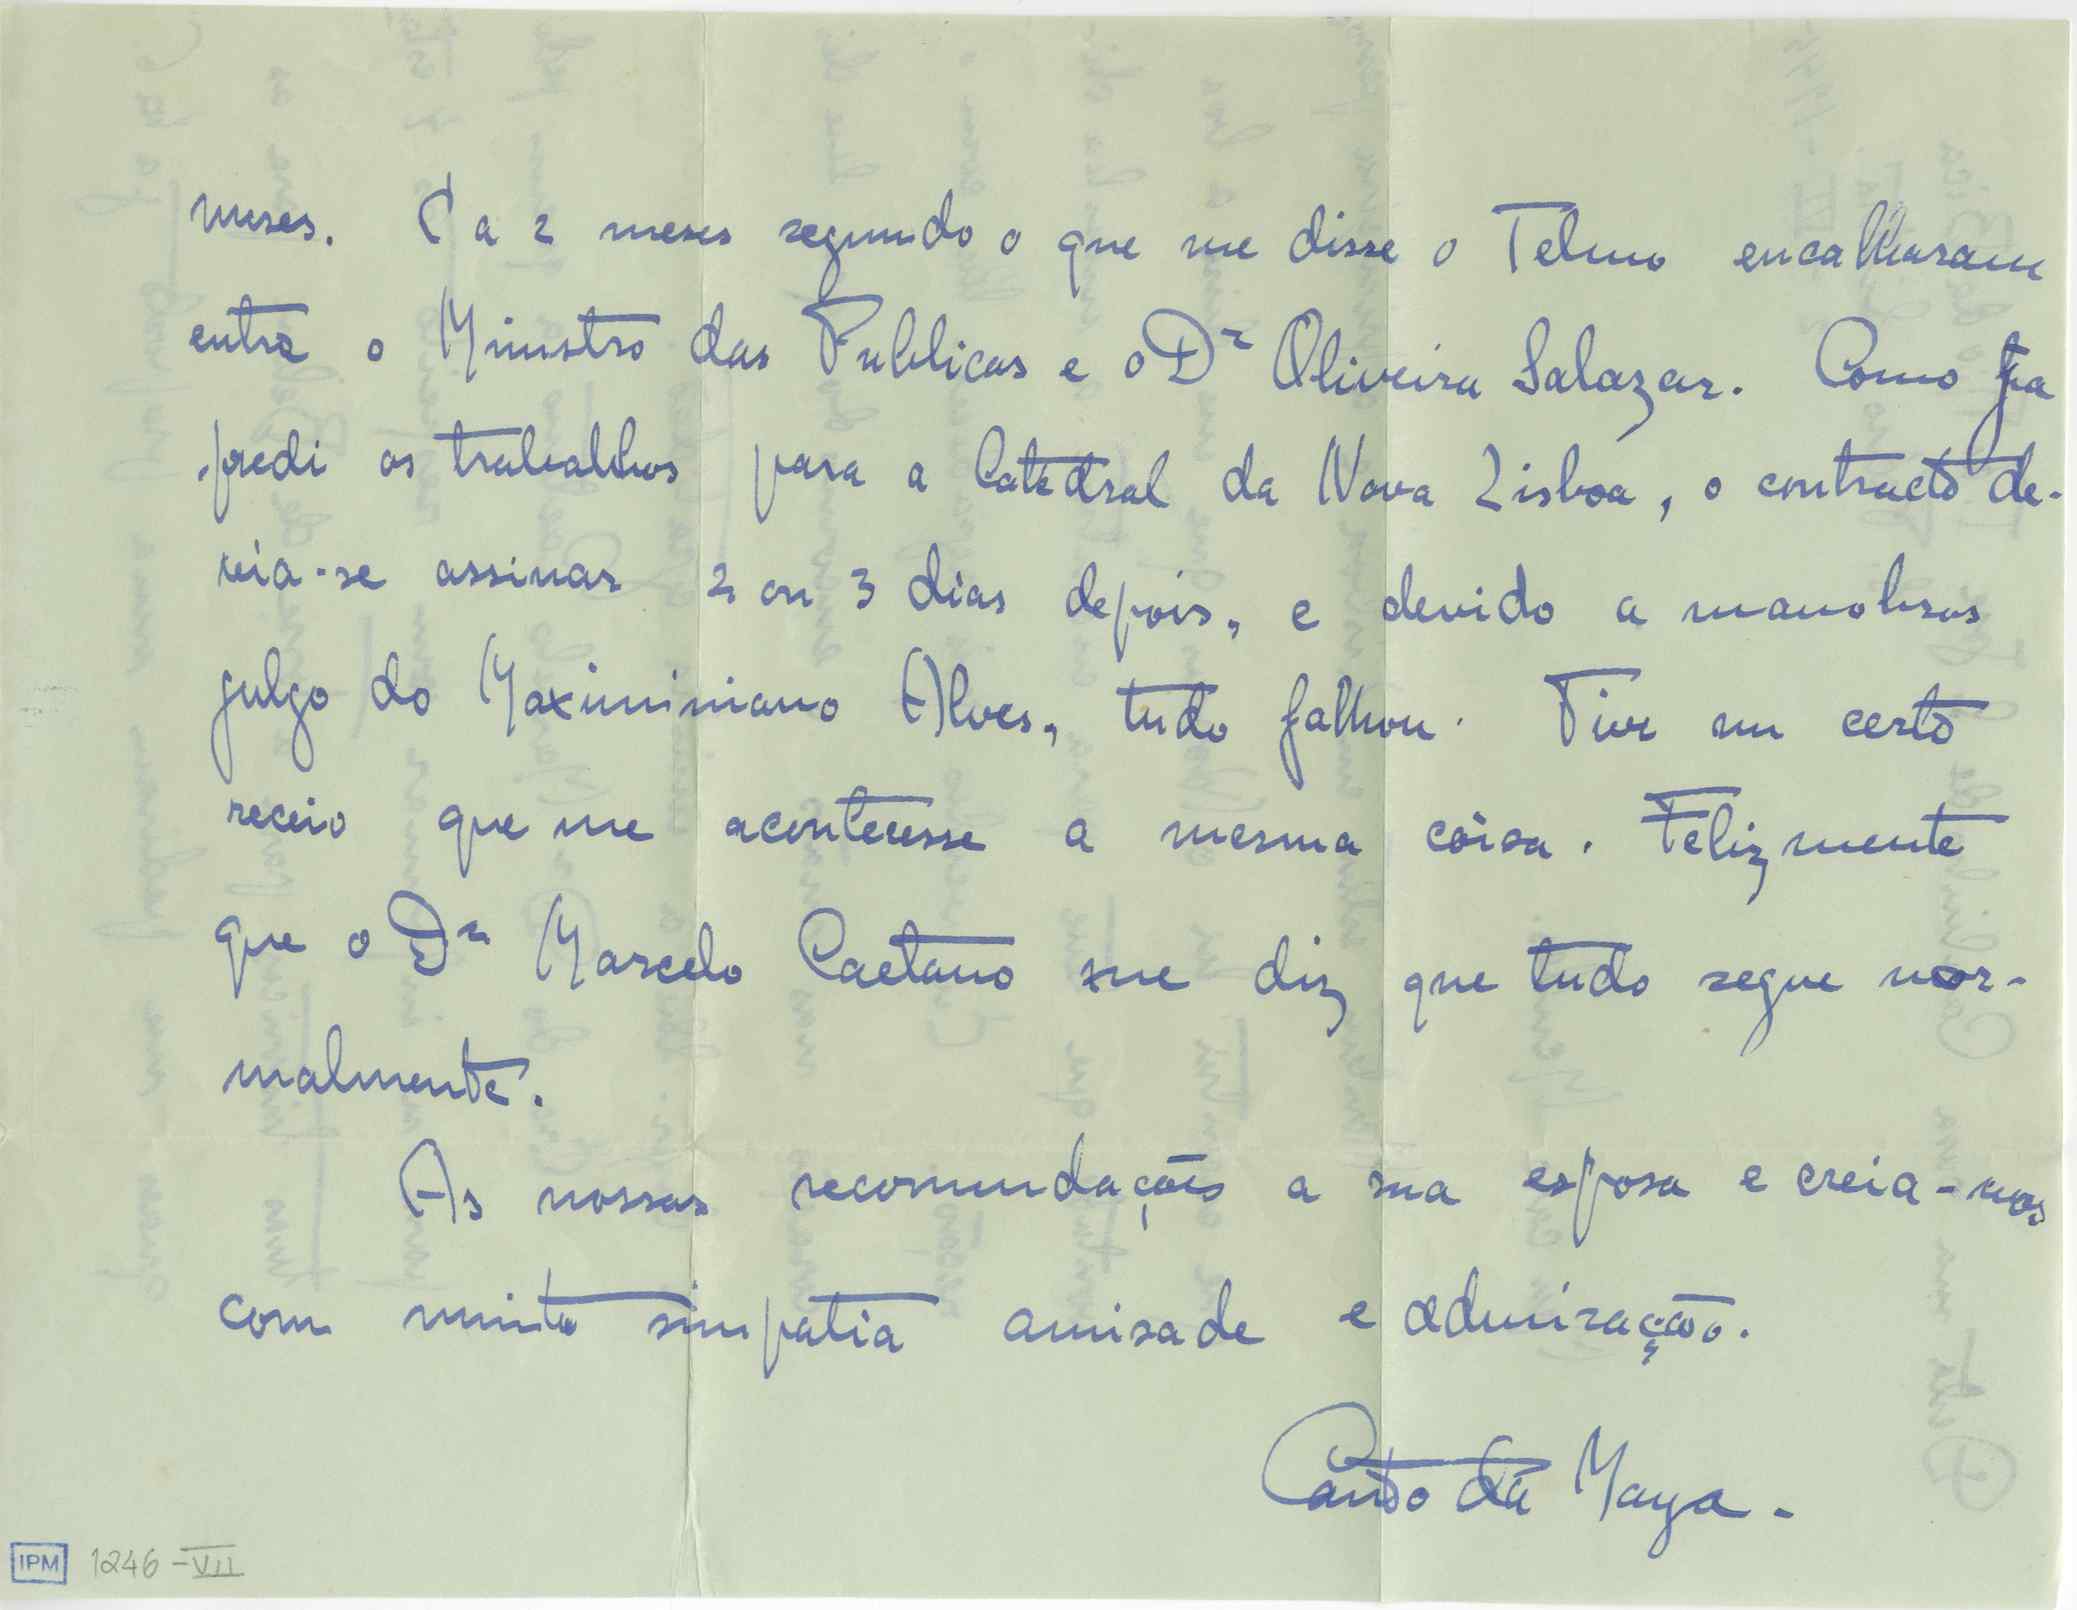 meses. Ca 2 meses segundo o que me disse o Telmo encalharam
entre o Ministro das Publicas e o Dr Oliveira Salazar. Como
pedi os trabalhos para a Catedral da Nova Lisboa, o contracto de-
via-se assinar 2 ou 3 dias depois, e devido a manobras
julgo do Maximiniano Alves, tudo falhou. Tive um certo
receio que me acontecesse a mesma coisa. Felizmente
que o Dr Marcelo Caetano me diz que tudo segue nor-
malmente.
As nossas recomendações a sua esposa e creia-nos
com muita simpatia amisade e admiração.
Canto da Maya.
IPM 1246-VII